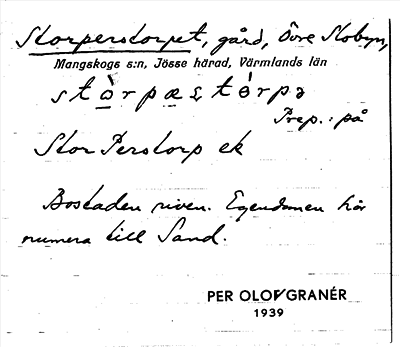 Storperstorpet, gård, Övre Skobyn,
Mangskogs s:n, Jösse härad, Värmlands län
stò̠rpæștórpə
Prep.: på
Stor Perstorp ek
Bostaden riven. Egendomen hör
numera till Sand.
PER OLOV GRANÉR
1939